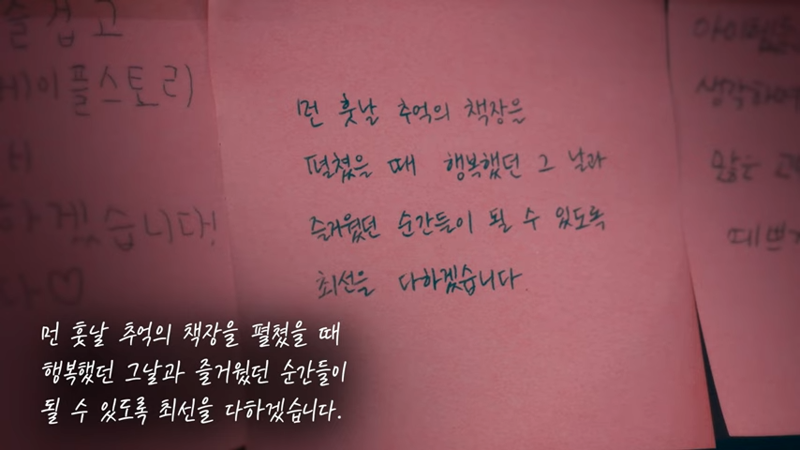 즐겁고
메이플스토리
하겠습니다!
다♡
먼 훗날 추억의 책장을
펼쳤을 때 행복했던 그 날과
즐거웠던 순간들이 될 수 있도록
최선을 다하겠습니다.
생각하며
많은
예쁘
먼 훗날 추억의 책장을 펼쳤을 때
행복했던 그날과 즐거웠던 순간들이
될 수 있도록 최선을 다하겠습니다.